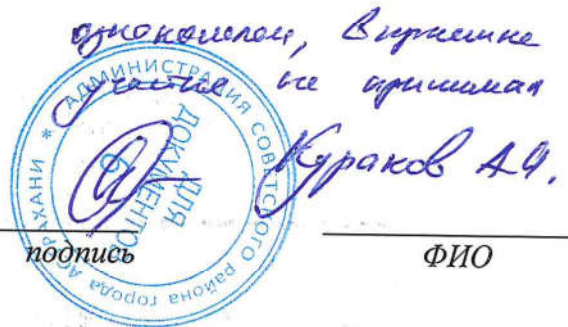 ознакомлен, в прениях
участие не принимал
Кураков А.Ч.
АДМИНИСТРАЦИЯ СОВЕТСКОГО района города АСТРАХАНИ *
ДЛЯ
ДОКУМЕНТОВ
подпись
ФИО